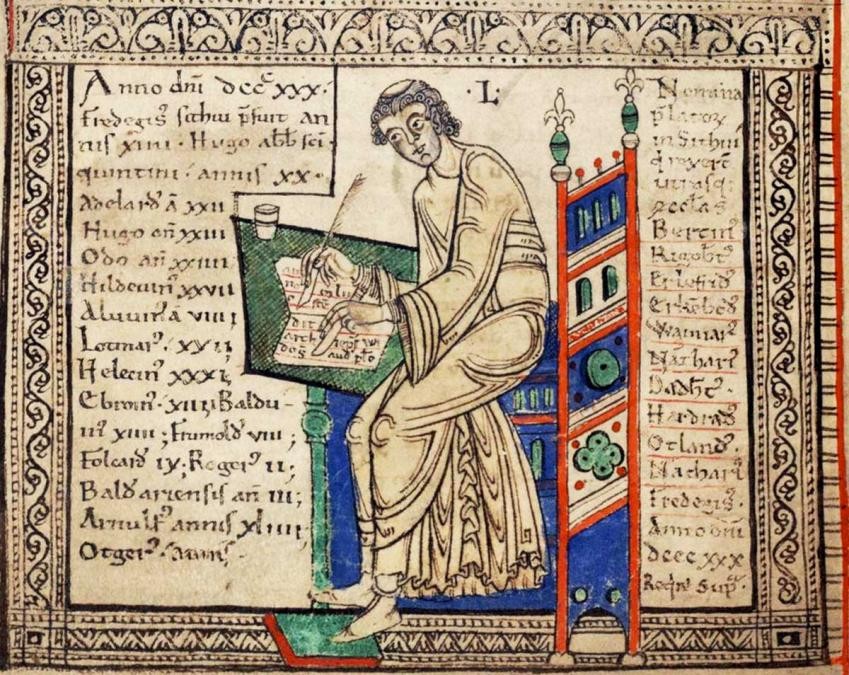 Anno dñi dccc̃ xxx.
Fredegis' sithiu p̃fuit an
nis xiiii. Hugo abb̃ sc̃i
quintini. annis xx.
Adelard' ã xxii
Hugo añ xxiiii
Odo añ xxiiii
Hilduuin' xxvii
Aluuin' ã viiii
Lotmar'. xvii
Helecin' xxxi
Ebroin'. Baldu-
in' xiiii; Frumold' viii;
Folcard' ix; Roger' ii;
Bald' ariensis añ iii;
Arnulf' annis xliiii
Otger'. annis
·L·
Nomina
p̃latoꝝ
in Sithiu
q̇ rexer̃t
utrasq;
Bertin'
Rigob̃t'
Erlefrid'
Erkẽbod'
Waimar'
Nathari'
Dadb̃t'.
Hardrad'
Otland'.
Nathari'
Fredegis'.
Anno dñi
dccc xxx
Reqr̃e Sup̃.